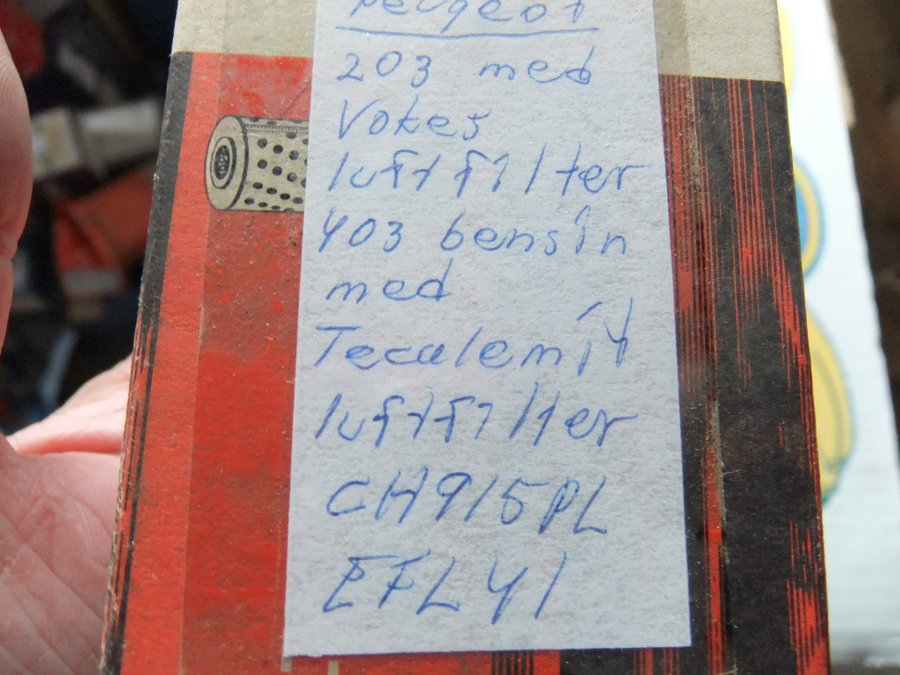 Peugeot
203 med
Vokes
luftfilter
403 bensin
med
Tecalemit
luftfilter
CH915PL
EFL41